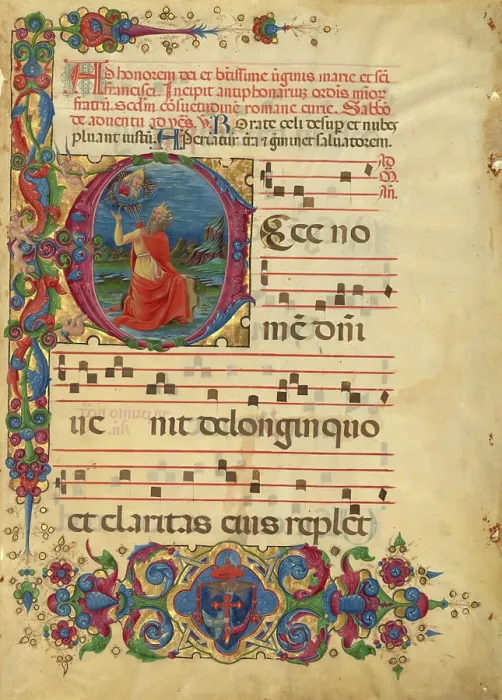 Ad honorem dei et btissime uginis marie et sci
francisci. Incipit antiphonarius ordis mior
fratru. Secdm cosuetudine romane curie. Sabbo
de aduentu ad ves. V. R. Orate celi desup et nubes
pluant iustu. Aperiatur tra i gminet saluatorem.
ad
an.
Ecce no
me dni
ue nit de longinquo
et claritas eius replet